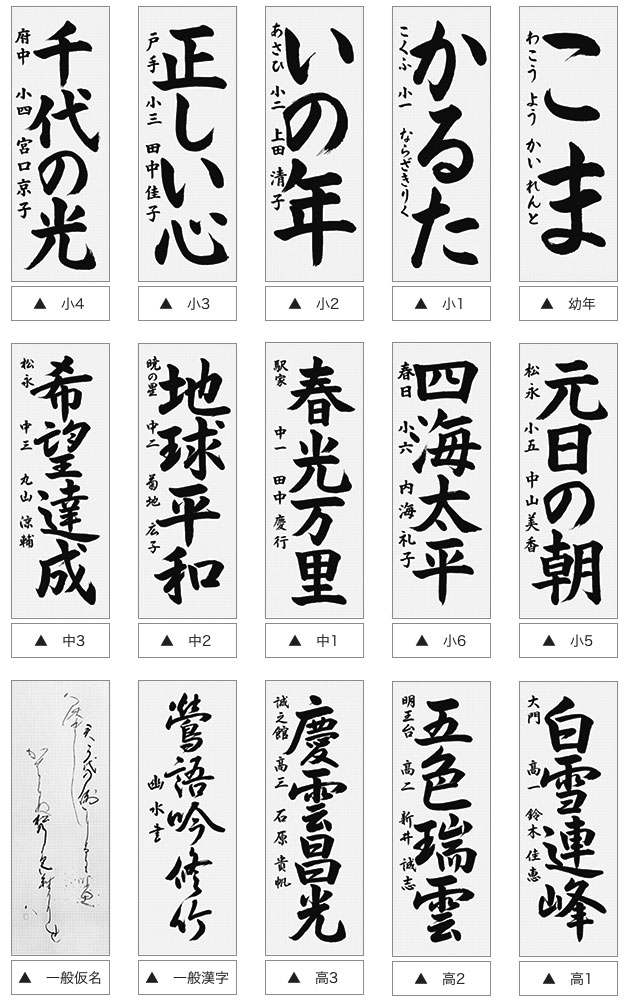 こま
わこう よう かいれんと
▲ 幼年
かるた
こくふ 小一 ならざきりく
▲ 小1
いの年
あさひ 小二 上田清子
▲ 小2
正しい心
戸手 小三 田中佳子
▲ 小3
千代の光
府中 小四 宮口京子
▲ 小4
元日の朝
松永 小五 中山美香
▲ 小5
四海太平
春日 小六 内海礼子
▲ 小6
春光万里
駅家 中一 田中慶行
▲ 中1
地球平和
暁の星 中二 菊地広子
▲ 中2
希望達成
松永 中三 丸山涼輔
▲ 中3
白雪連峰
大門 高一 鈴木佳恵
▲ 高1
五色瑞雲
明王台 高二 新井誠志
▲ 高2
慶雲昌光
誠之館 高三 石原貴帆
▲ 高3
鶯語吟修竹
幽水書
▲ 一般漢字
▲ 一般仮名